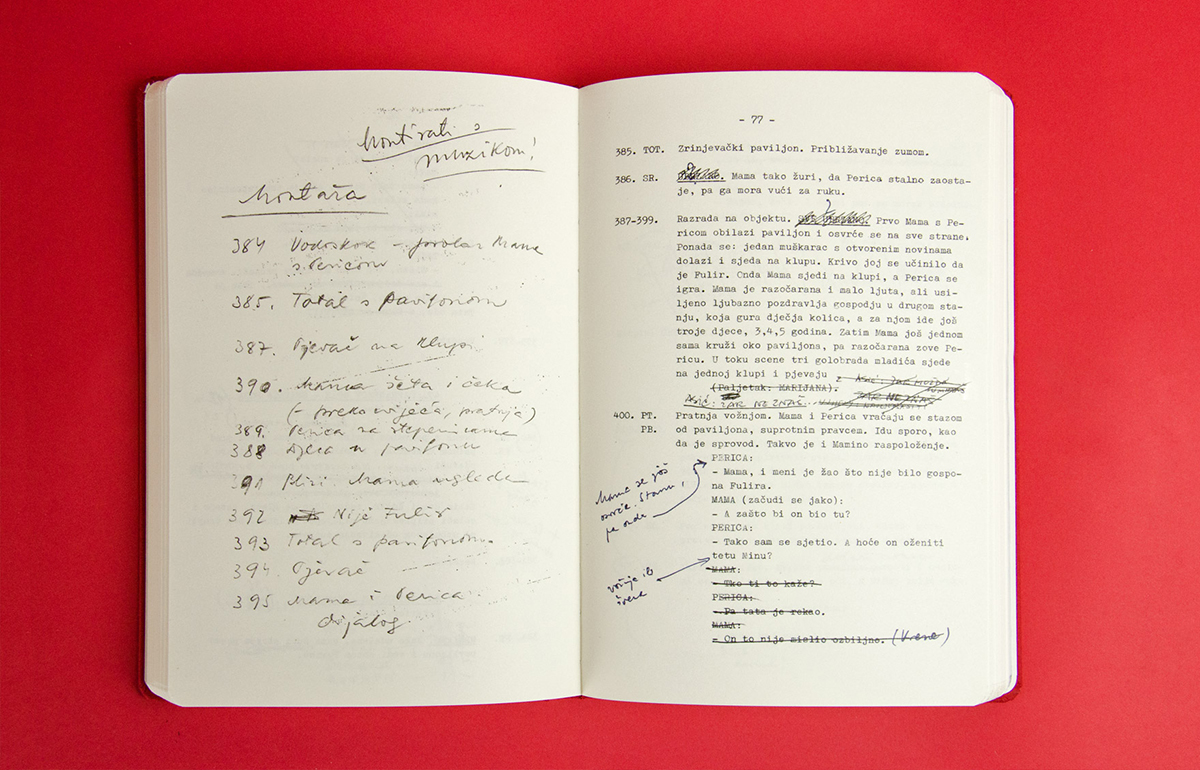 Montirati s
muzikom!
Montaža
384 Vodoskok - Mama
s Pericom
385. Total s paviljonom
387. Pjevač na klupi
390. Mama šeta i čeka
(- preko cvijeća, pratnja)
389. Perica na stepenicama
388 Djeca u paviljonu
391 Bliži Mama ugleda
392 Nije Fulir
393 Total s paviljonom.
394 Pjevač
395 Mama i Perica
dijalog.
- 77 -
385. TOT. Zrinjevački paviljon. Približavanje zumom.
386. SR. Mama tako žuri, da Perica stalno zaosta-
je, pa ga mora vući za ruku.
387-399. Razrada na objektu. Prvo Mama s Pe-
ricom obilazi paviljon i osvrće se na sve strane.
Ponada se: jedan muškarac s otvorenim novinama
dolazi i sjeda na klupu. Krivo joj se učinilo da
je Fulir. Onda Mama sjedi na klupi, a Perica se
igra. Mama je razočarana i malo ljuta, ali usi-
ljeno ljubazno pozdravlja gospodju u drugom sta-
nju, koja gura dječja kolica, a za njom ide još
troje djece, 3,4,5 godina. Zatim Mama još jednom
sama kruži oko paviljona, pa razočarana zove Pe-
ricu. U toku scene tri golobrada mladića sjede
na jednoj klupi i pjevaju
(Paljetak: MARIJANA).
ZAR NE ZNAŠ
ZAR NE ZNAŠ
400. PT. Pratnja vožnjom. Mama i Perica vraćaju se stazom
PB. od paviljona, suprotnim pravcem. Idu sporo, kao
da je sprovod. Takvo je i Mamino raspoloženje.
PERICA:
- Mama, i meni je žao što nije bilo gospo-
na Fulira.
Mama se još
osvrće. Stanu,
pa onda
MAMA (začudi se jako):
- A zašto bi on bio tu?
PERICA:
- Tako sam se sjetio. A hoće on oženiti
tetu Minu?
MAMA:
- Tko ti to kaže?
PERICA:
- Pa tata je rekao.
MAMA:
- On to nije mislio ozbiljno. (Krene)